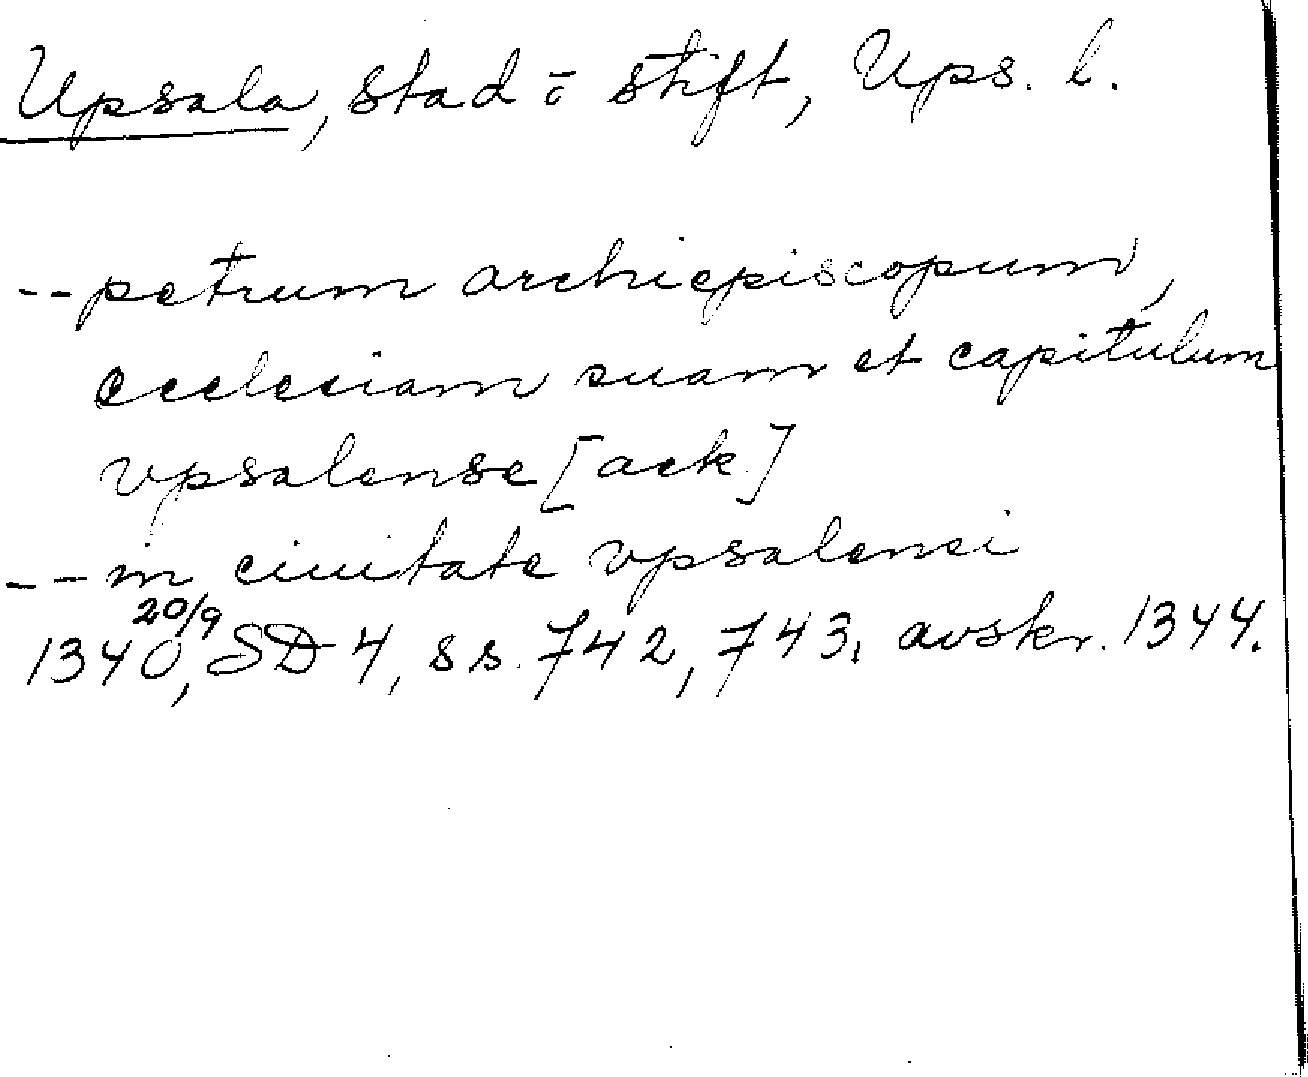 Upsala, stad o stift, Ups. l.
-- petrum archiepiscopum,
ecclesiam suam et capitulum
vpsalense [ack.]
-- in ciuitate vpsalensi
1340 20/9, SD 4, ss. 742, 743, avskr. 1344.